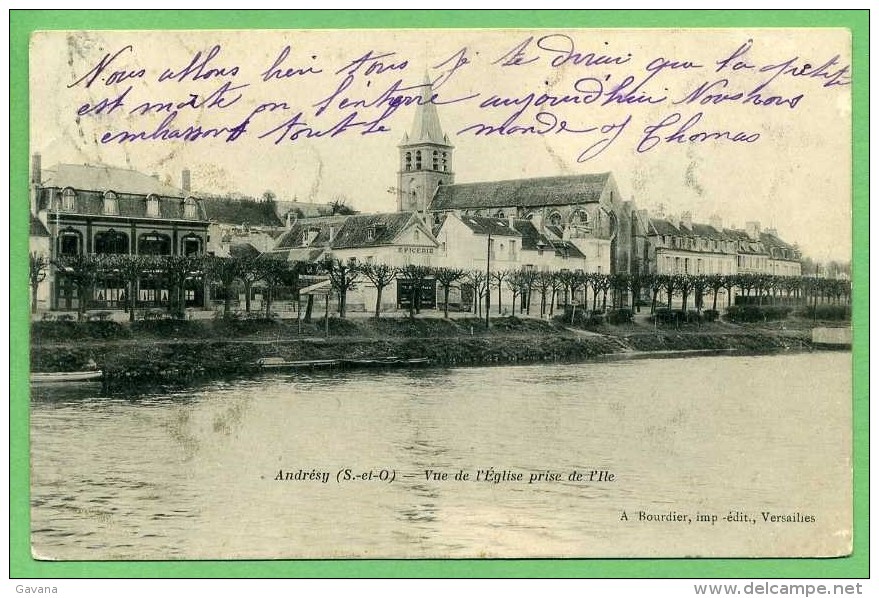 Nous allons bien tous je te dirai que la petite
est morte on l'enterre aujourd'hui Nous vous
embrassons tout le monde et Thomas
EPICERIE
Andrésy (S.-et-O) — Vue de l'Église prise de l'Ile
A Bourdier, imp -édit., Versailles
Gavana
www.delcampe.net